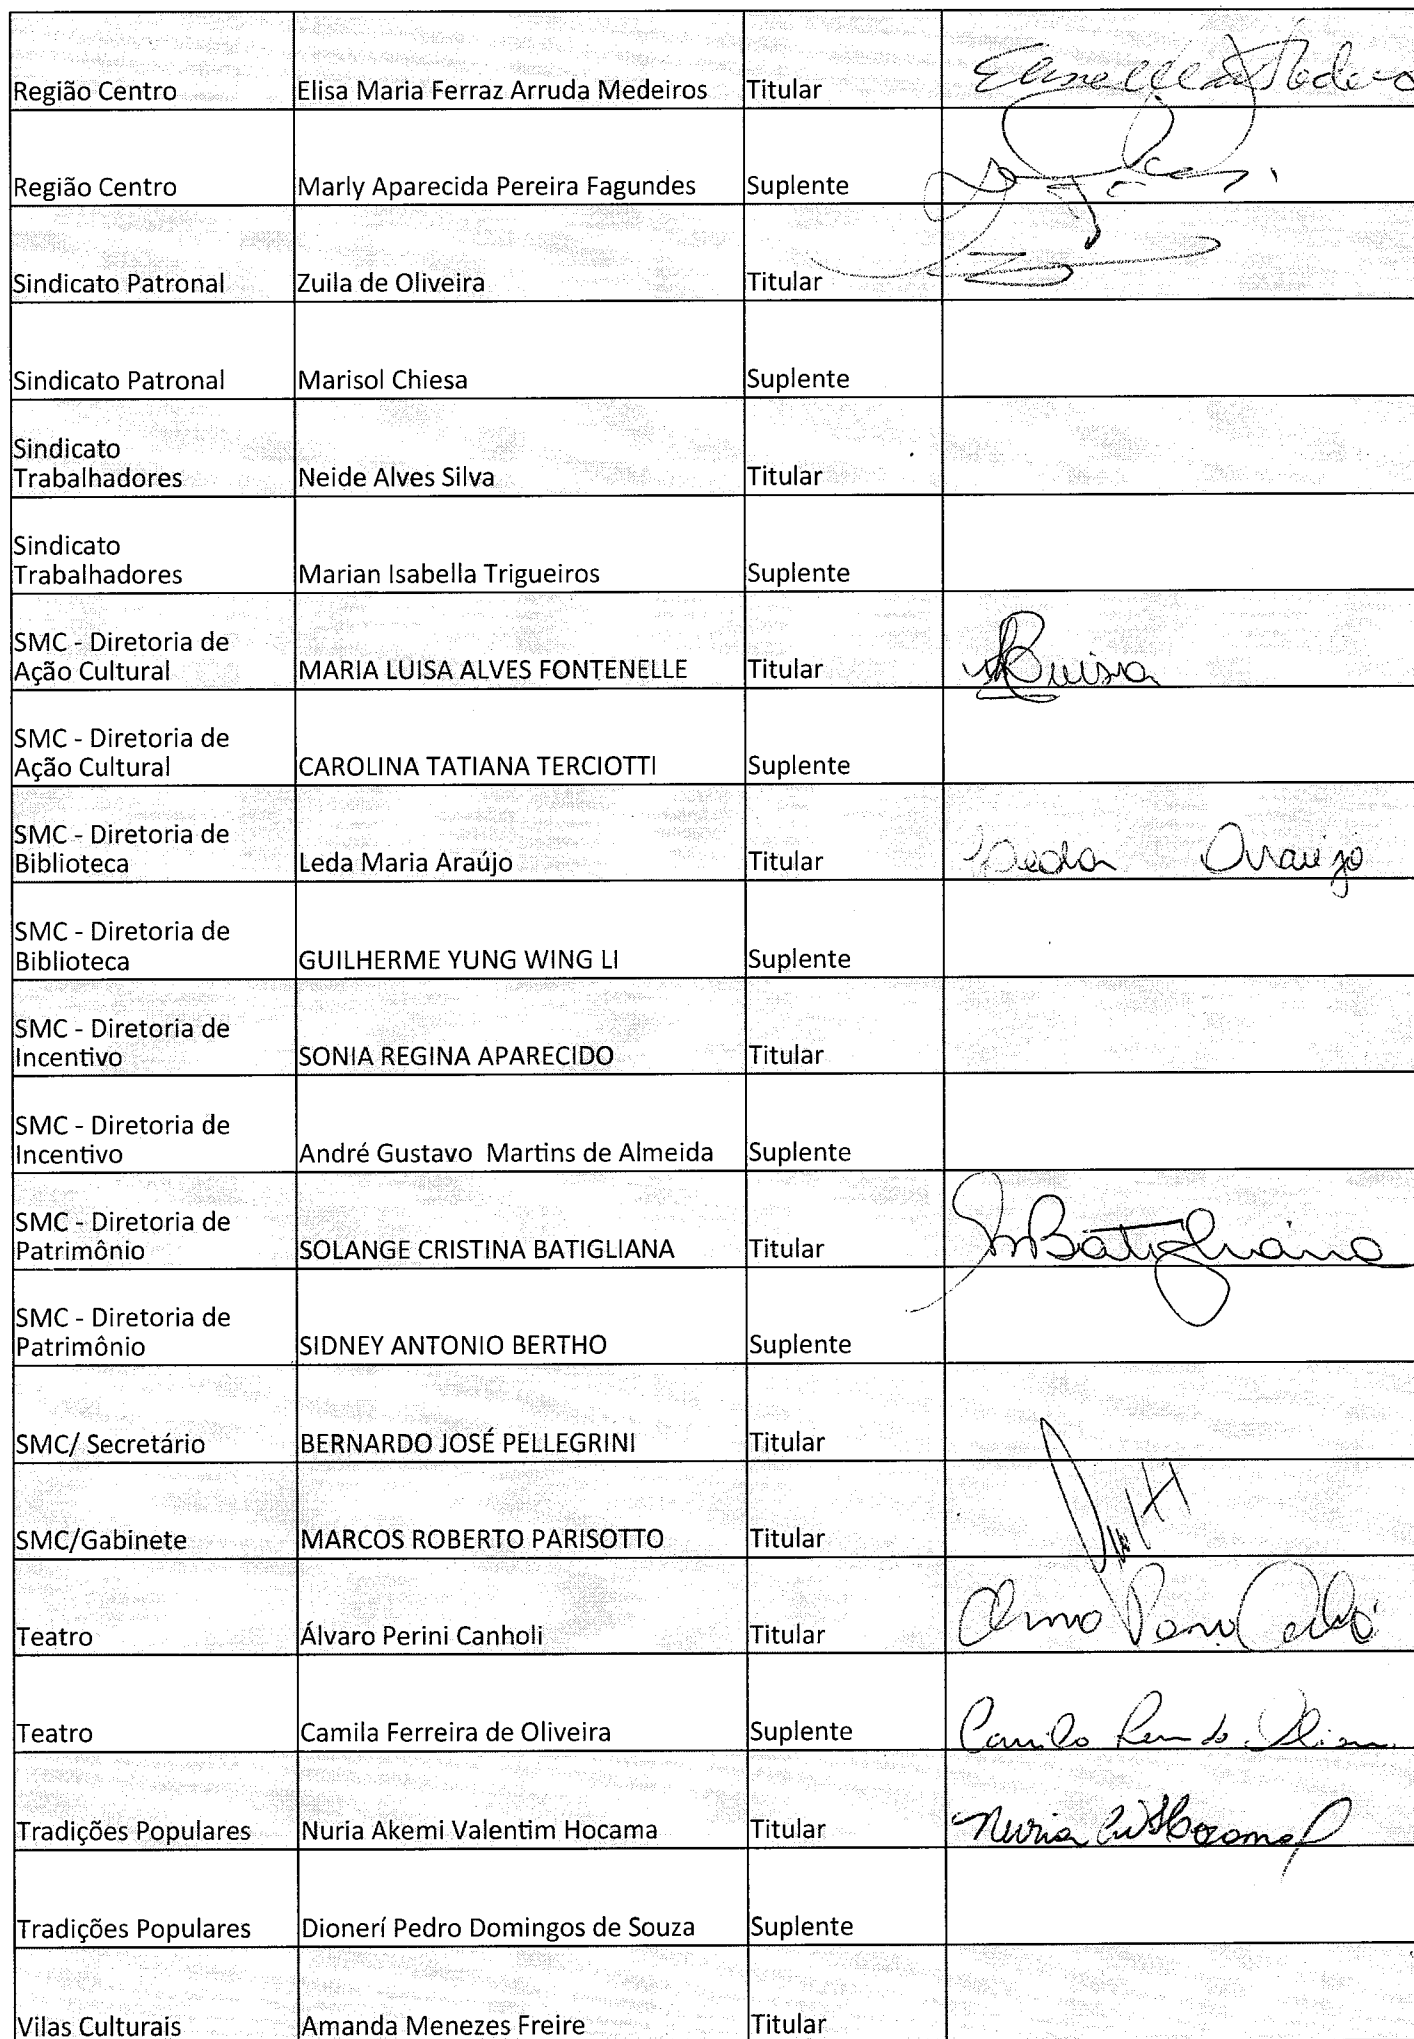 Região Centro Elisa Maria Ferraz Arruda Medeiros Titular
Região Centro Marly Aparecida Pereira Fagundes Suplente
Sindicato Patronal Zuila de Oliveira Titular
Sindicato Patronal Marisol Chiesa Suplente
Sindicato
Trabalhadores Neide Alves Silva Titular
Sindicato
Trabalhadores Marian Isabella Trigueiros Suplente
SMC - Diretoria de
Ação Cultural MARIA LUISA ALVES FONTENELLE Titular Luisa
SMC - Diretoria de
Ação Cultural CAROLINA TATIANA TERCIOTTI Suplente
SMC - Diretoria de
Biblioteca Leda Maria Araújo Titular Leda Araújo
SMC - Diretoria de
Biblioteca GUILHERME YUNG WING LI Suplente
SMC - Diretoria de
Incentivo SONIA REGINA APARECIDO Titular
SMC - Diretoria de
Incentivo André Gustavo Martins de Almeida Suplente
SMC - Diretoria de
Patrimônio SOLANGE CRISTINA BATIGLIANA Titular Batigliana
SMC - Diretoria de
Patrimônio SIDNEY ANTONIO BERTHO Suplente
SMC/ Secretário BERNARDO JOSÉ PELLEGRINI Titular
SMC/Gabinete MARCOS ROBERTO PARISOTTO Titular
Teatro Álvaro Perini Canholi Titular
Teatro Camila Ferreira de Oliveira Suplente Camila
Tradições Populares Nuria Akemi Valentim Hocama Titular Nuria
Tradições Populares Dionerí Pedro Domingos de Souza Suplente
Vilas Culturais Amanda Menezes Freire Titular